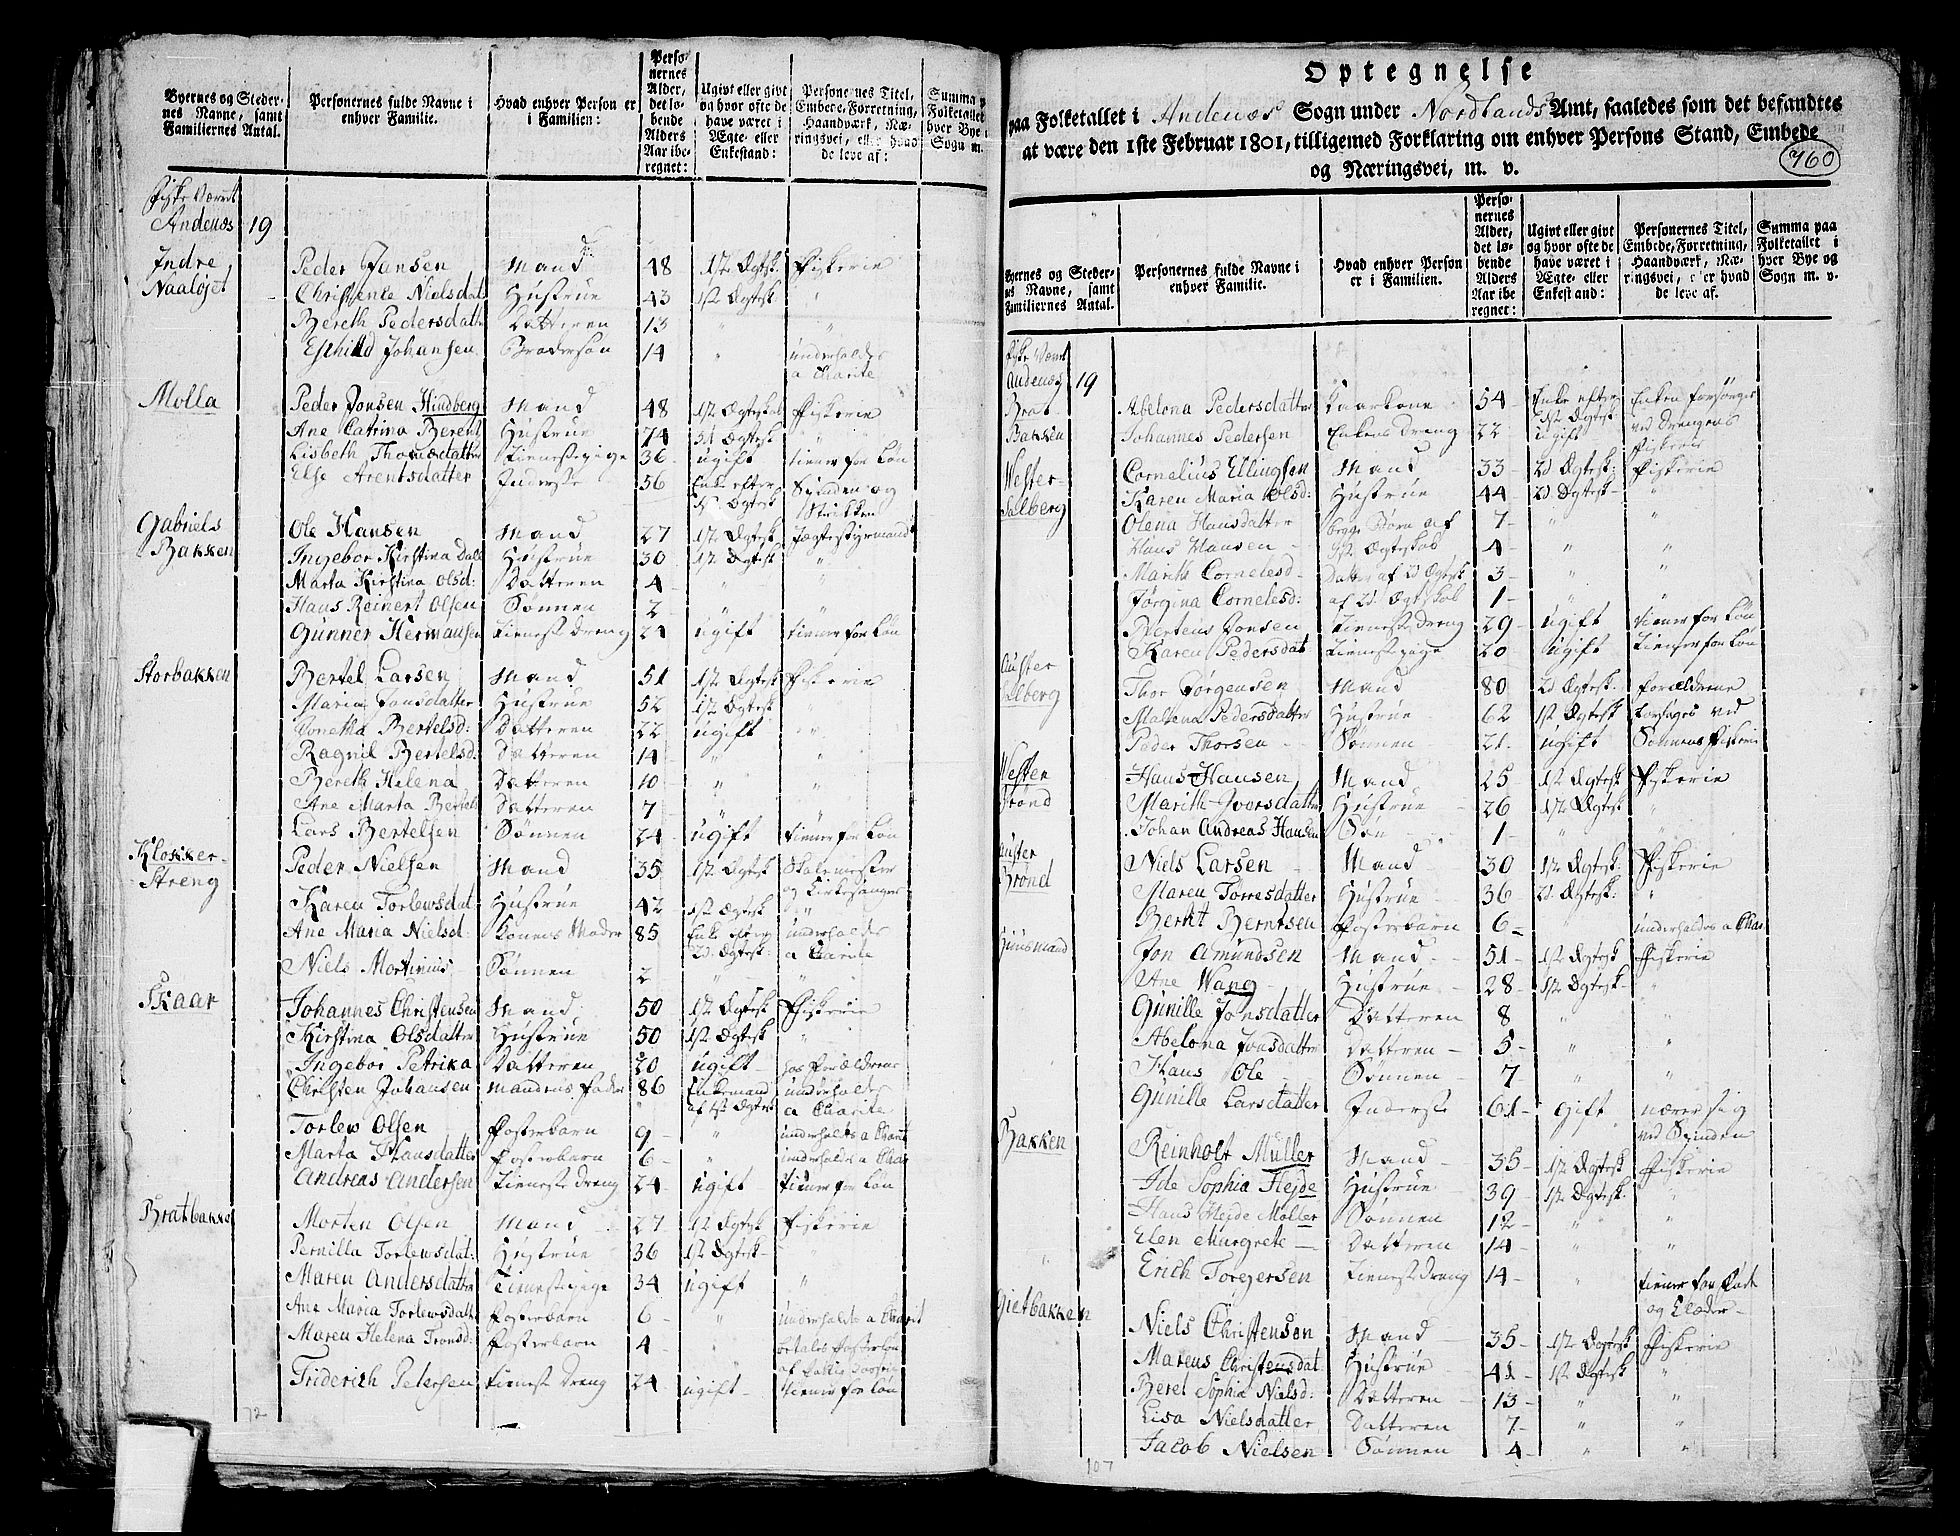 Byernes og Steder-
nes Navne, samt
Familiernes Antal.
Personernes fulde Navne i
enhver Familie.
Hvad enhver Person er
i Familien:
Perso-
nernes
Alder,
det lø-
bende
Alders
Aar ibe-
regnet:
Ugivt eller givt
og hvor ofte de
have været i
Ægte- eller
Enkestand:
Personernes Titel,
Embede, Forretning,
Haandværk, Næ-
ringsvei, eller hvad
de leve af:
Summa p
Folketallet
hver Bye
Sogn m.
Fiske Været
Andenæs 19
Indre Peder Jansen Mand 48 1ste Ægtesk. Fiskerie
Naaløjet Christenle Nielsdat Hustrue 43 1st Ægtesk "
Bereth Pedersdatter Datteren 13 " "
Eschild Johansen Brodersøn 14 " underholdes
a Charite
Molla Peder Jonsen Hindberg Mand 48 1st Ægteskab Fiskerie
Ane Catrina Berent Hustrue 74 3d Ægtesk "
Lisbeth Thomædatter Tienestepige 36 ugift tiener for Løn
Else Arentsdatter Inderste 56 Enke efter Spinden og
1st Ægtesk Strikken
Gabriels Ole Hansen Mand 27 1st Ægtesk Jægtestyrmand
Bakken Ingebor Kirstina Dall Hustrue 30 1st Ægtesk "
Marta Kirstina Olsd: Datteren 4 " "
Hans Reinert Olsen Sønnen 2 " "
Gunner Hermansen Tieneste dreng 24 ugift tiener for Løn
Storbakken Bertel Larsen Mand 51 1st Ægtesk Fiskerie
Maria Jonsdatter Hustrue 52 1st Ægtesk "
Jonetha Bertelsd: Datteren 22 ugift "
Ragnil Bertelsd: Datteren 14 " "
Bereth Helena Datteren 10 " "
Ane Marta Bertels Datteren 7 " "
Lars Bertelsen Sønnen 24 ugift tiener for Løn
Klokker- Peder Nielsen Mand 35 1st Ægtesk Skolemester
Streng og Kirkesanger
Karen Torlewsdat Hustrue 42 1st Ægtesk "
Ane Maria Nielsd. Konens Moder 85 Enke efter underholdes
2d. Ægtesk: a Charite
Niels Mortinus Sønnen 2 " "
Skaar Johannes Christensen Mand 50 1st Ægtesk Fiskerie
Kirstina Olsdatter Hustrue 50 1st Ægtesk "
Ingebor Petrika Datteren 20 ugift hos Forældrene
Christen Johansen Mandens Fader 86 Enkemand underholdes
af 1st Ægtesk a Charite
Torlew Olsen Fosterbarn 9 " underholdes a Charit
Marta Hansdatter Fosterbarn 6 " underholdes a Char
Andreas Andersen Tieneste dreng 24 ugift tiener for Løn
Bratbakke Morten Olsen Mand 27 1st Ægtesk Fiskerie
Pernilla Torlewsdat: Hustrue 36 1st Ægtesk "
Maren Andersdatter Tienestepige 34 ugift "
Ane Maria Torlewsdatt Fosterbarn 6 " underholdes a Charit
Maren Helena Tronsd: Fosterbarn 4 " betales Fosterløn
af
Friderich Petersen Tieneste Dreng 24 ugift tiener for Løn
72
Optegnelse
paa Folketallet i Andenæs Sogn under Nordlands Amt, saaledes som det befandtes
at være den 1ste Februar 1801, tilligemed Forklaring om enhver Persons Stand, Embede
og Næringsvei, m. v.
760
Byernes og Steder-
nes Navne, samt
Familiernes Antal.
Personernes fulde Navne i
enhver Familie.
Hvad enhver Person
er i Familien.
Perso-
nernes
Alder,
det lø-
bende
Alders
Aar ibe-
regnet:
Ugivt eller givt
og hvor ofte de
have været i
Ægte- eller
Enkestand:
Personernes Titel,
Embede, Forretning,
Haandværk, Næ-
ringsvei, eller hvad
de leve af.
Summa paa
Folketallet i
hver Bye og
Sogn m. v.
Fiske Været
Andenæs 19
Brat- Abelona Pedersdatter Kaarkone 54 Enke efter Enken forsørges
1st Ægtesk ved Drengens
Bakken Johannes Pedersen Enkens Dreng 22 ugift Fiskerie
Wester- Cornelius Ellingsen Mand 33 2d Ægtesk: Fiskerie
Karen Maria Olsd: Hustrue 44 2d Ægtesk "
Salberg Olena Hansdatter begge Børn af 7 " "
Hans Hansen 1st. Ægteskab 4 " "
Marith Cornelesd Datter af 2d Ægtesk 3 " "
Jørgina Cornelesd: af 2d. Ægteskab 1 " "
Bertens Jonsen Tieneste dreng 29 ugift tiener for Løn
Karen Pedersdat Tienestepige 20 ugift tiener for Løn
Auster Thor Jørgensen Mand 80 2d Ægtesk: Forældrene
Salberg Malena Pedersdatter Hustrue 62 1st Ægtesk forsørges ved
Peder Thorsen Sønnen 21 ugift Sønnens Fiskerie
Wester Hans Hansen Mand 25 1st Ægtesk Fiskerie
Brønd Marith Iversdatter Hustrue 26 1st Ægtesk "
Johan Andreas Hansen Søn 1 " "
Auster Niels Larsen Mand 30 1st Ægtesk: Fiskerie
Brønd Maren Torresdatter Hustrue 36 2d. Ægtesk: "
Bernt Berntsen Fosterbarn 6 " underholdes a Char
Huusmand Jon Amundsen Mand 51 1st Ægtesk Fiskerie
Ane Wang Hustrue 28 1st Ægtesk "
Gunille Jonsdatter Datteren 8 " "
Abelona Jonsdatter Datteren 5 " "
Hans Ole Sønnen 7 " "
Gunille Larsdatter Inderste 61 gift nærer sig
ved Spinden
Bakken Reinholt Müller Mand 35 1st Ægtesk Fiskerie
Ide Sophia Hejde Hustrue 39 1st Ægtesk. "
Hans Hejde Møller Sønnen 12 " "
Elen Margrete Datteren 14 " "
Erich Toregersen Tieneste dreng 14 " tiener for Føde
og Klæder
Gietbakken Niels Christensen Mand 35 1st Ægtesk Fiskerie
Marens Christensdat Hustrue 41 1st Ægtesk "
Beret Sophia Nielsd: Datteren 13 " "
Lisa Nielsdatter Datteren 7 " "
Jacob Nielsen Sønnen 4 " "
107